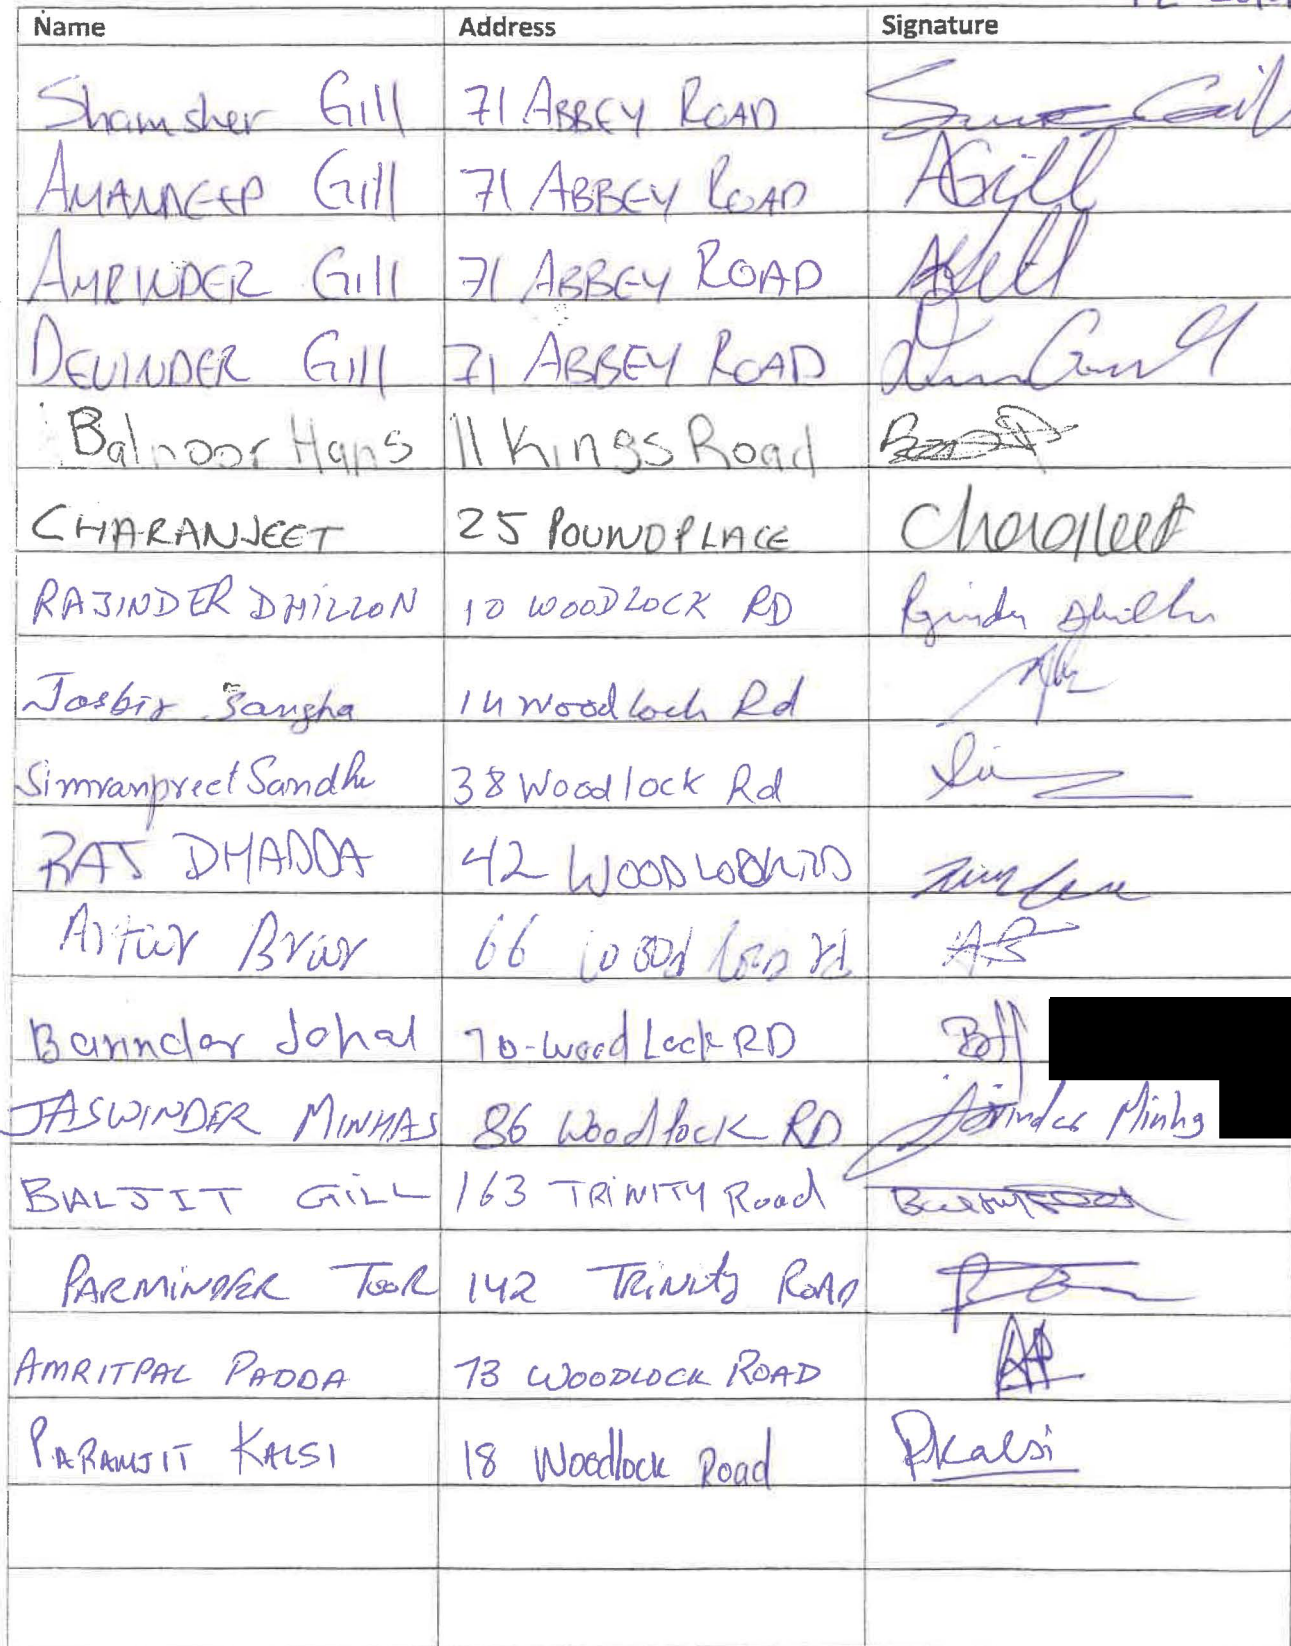 Name Address Signature
Shamsher Gill 71 ABBEY ROAD
AMANDEEP Gill 71 ABBEY ROAD AGill
AMRINDER Gill 71 ABBEY ROAD AGill
DEVINDER Gill 71 ABBEY ROAD
Balnoor Hans 11 Kings Road
CHARANJEET 25 POUND PLACE Charanjeet
RAJINDER DHILLON 10 WOODLOCK RD Rajinder Dhillon
Jasbir Sangha 14 Woodlock Rd
Simranpreet Sandhu 38 Woodlock Rd
RAJ DHADDA 42
Brar 66 AB
Barinder Johal 70-Wood Lock RD
JASWINDER MINHAS 86 Woodlock RD Minhas
BALJIT GILL 163 TRINITY Road
PARMINDER TOOR 142 TRINITY ROAD
AMRITPAL PADDA 73 WOODLOCK ROAD AP
PARAMJIT KALSI 18 Woodlock Road PKalsi